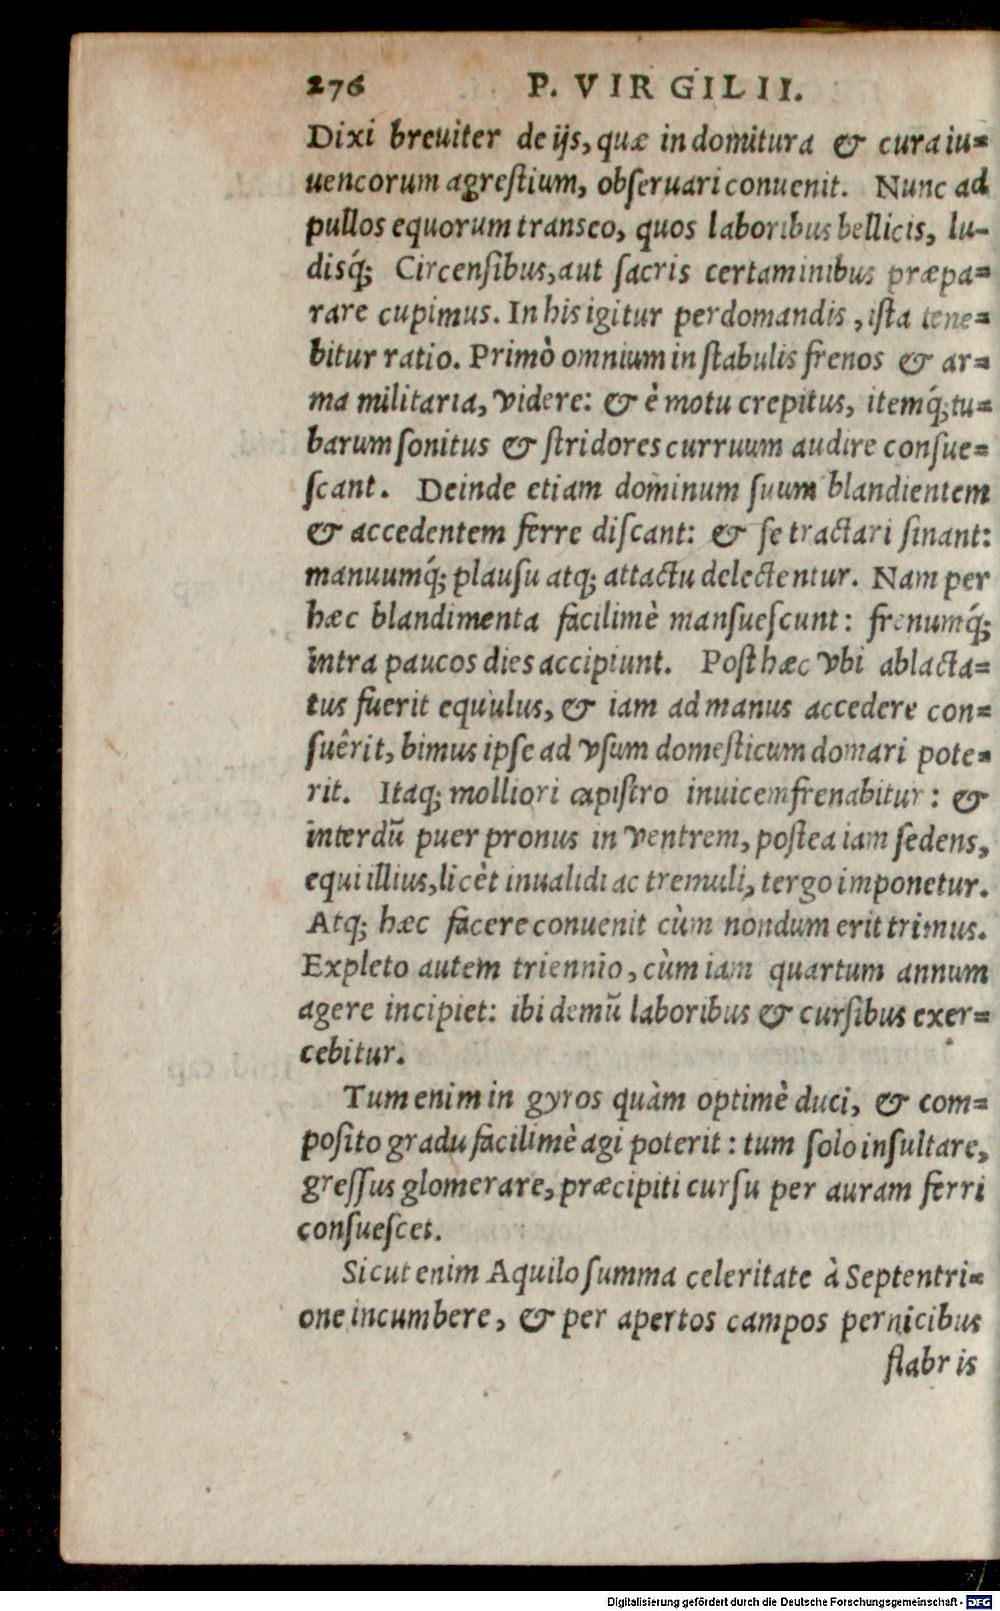 276 P. VIRGILII.
Dixi breuiter de ijs, quæ in domitura & cura iu=
uencorum agreſtium, obſeruari conuenit. Nunc ad
pullos equorum transeo, quos laboribus bellicis, lu-
disq́; Circenſibus, aut ſacris certaminibus præpa=
rare cupimus. In his igitur perdomandis, iſta tene=
bitur ratio. Primò omnium in ſtabulis frenos & ar=
ma militaria, videre: & è motu crepitus, itemq́; tu=
barum ſonitus & ſtridores curruum audire conſue=
ſcant. Deinde etiam dominum ſuum blandientem
& accedentem ferre diſcant: & ſe tractari ſinant:
manuumq́; plauſu atq; attactu delectentur. Nam per
hæc blandimenta facilimè manſueſcunt: frenumq́;
intra paucos dies accipiunt. Poſt hæc vbi ablacta=
tus fuerit equulus, & iam ad manus accedere con=
ſuêrit, bimus ipſe ad vſum domeſticum domari pote=
rit. Itaq; molliori capiſtro inuicem frenabitur: &
interdũ puer pronus in ventrem, poſtea iam ſedens,
equi illius, licèt inualidi ac tremuli, tergo imponetur.
Atq; hæc facere conuenit cùm nondum erit trimus.
Expleto autem triennio, cùm iam quartum annum
agere incipiet: ibi demũ laboribus & curſibus exer=
cebitur.
Tum enim in gyros quàm optimè duci, & com=
poſito gradu facilimè agi poterit: tum ſolo inſultare,
greſſus glomerare, præcipiti curſu per auram ferri
conſueſcet.
Sicut enim Aquilo ſumma celeritate à Septentri=
one incumbere, & per apertos campos pernicibus
flabris
Digitalisierung gefördert durch die Deutsche Forschungsgemeinschaft - DFG